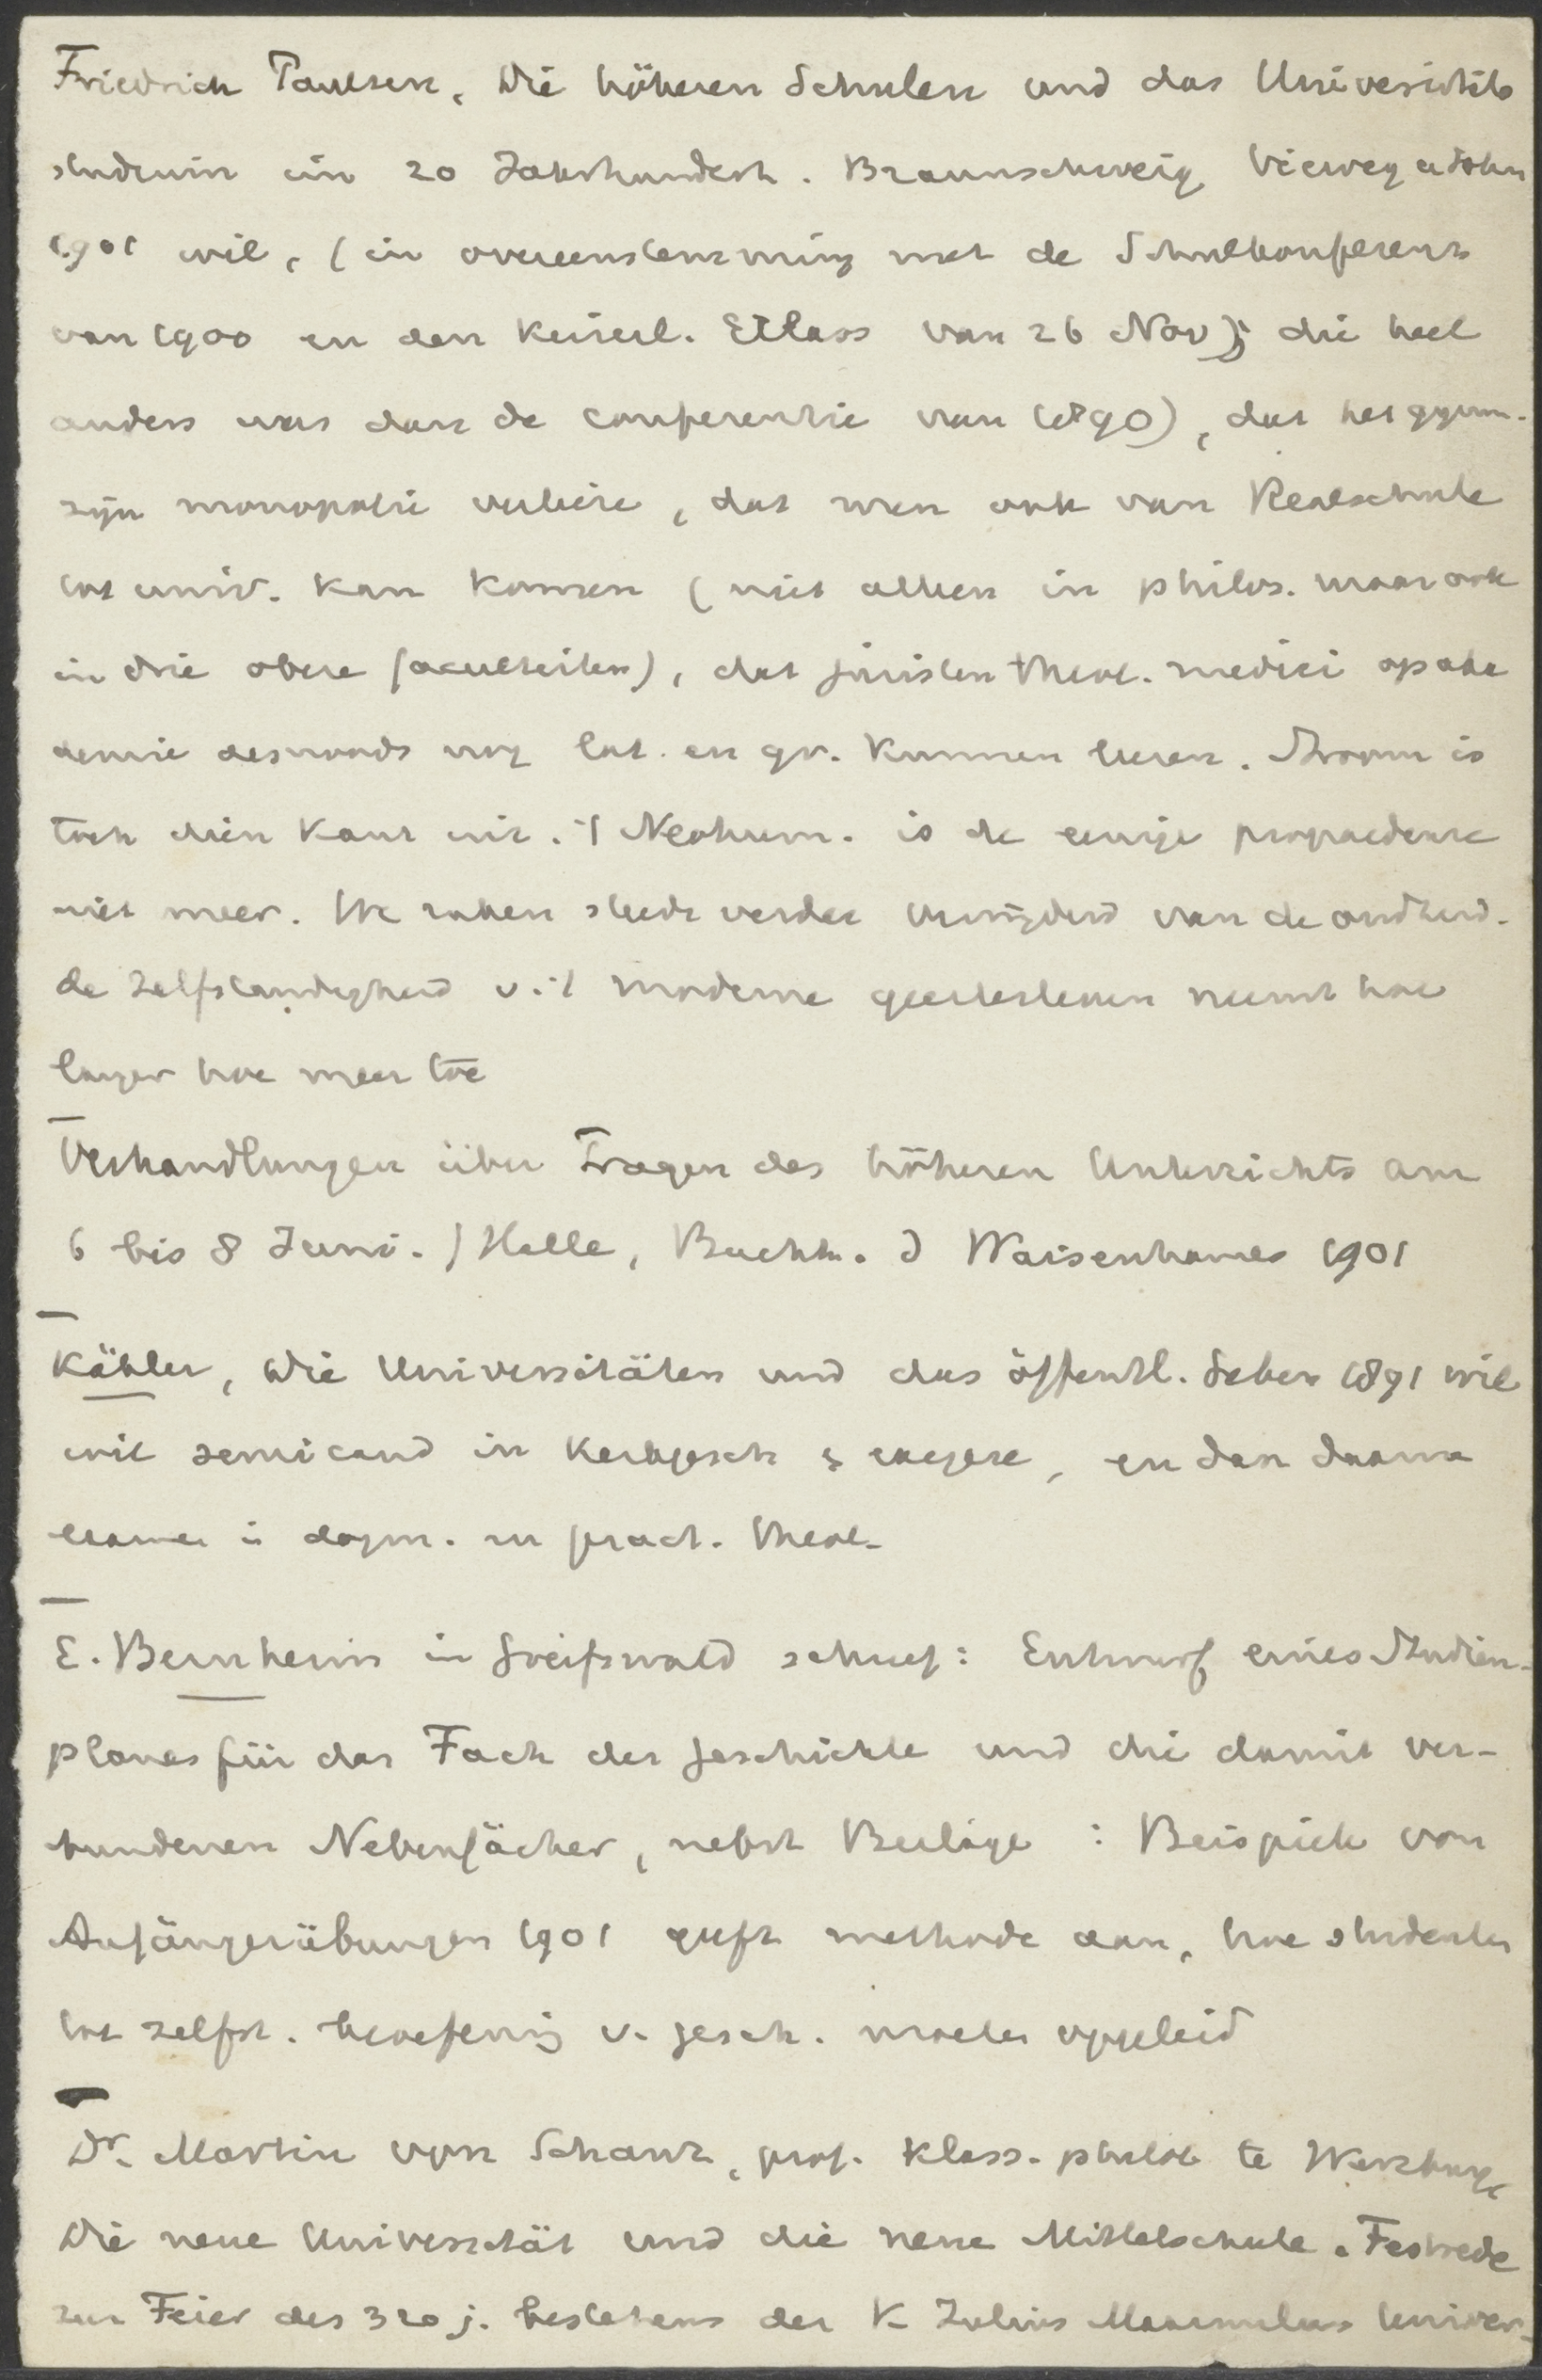 Friedrich Paulsen, Die höheren Schulen und das Universitäts
studium im 20 Jahrhundert. Braunschweig Vieweg u Sohn
1901 wil, (in overeenstemming met de Schulkonferenz
van 1900 en den Keizerl. Erlass van 26 Nov); die heel
anders was dan de conferentie van 1890), dat het gymn.
zijn monopolie verlieze, dat men ook van Realschule
tot univ. kan komen (niet alleen in philos. maar ook
in drie obere faculteiten), dat juristen theol. medici op aka
demie desnoods nog lat. en gr. kunnen leeren. Stroom is
toch dien kant uit. 't Neohum. is de eenige propaedeuse
niet meer. We raken steeds verder verwijderd van de oudheid.
de zelfstandigheid v. 't moderne geestesleven neemt hoe
langer hoe meer toe
Verhandlungen über Fragen des höheren Unterrichts am
6 bis 8 Juni. Halle, Buchh. d Waisenhauses 1901
Kähler, Die Universitäten und das öffentl. Leben 1891 wil
wil semicand in Kerkgesch & exegese, en dan daarna
examen in dogm. en pract. theol.
E. Bernheim in Greifswald schreef: Entwurf eines Studien-
planes für das Fach der Geschichte und die damit ver-
bundenen Nebenfächer, nebst Beilage: Beispiele von
Anfängerübungen 1901 geeft methode aan, hoe studenten
tot zelfst. beoefening v. gesch. moeten opgeleid
Dr. Martin von Schanz, prof. klass. philol te Würzburg,
Die neue Universität und die neue Mittelschule. Festrede
zur Feier des 320 j. bestehens der K Julius Maximilians Univer-